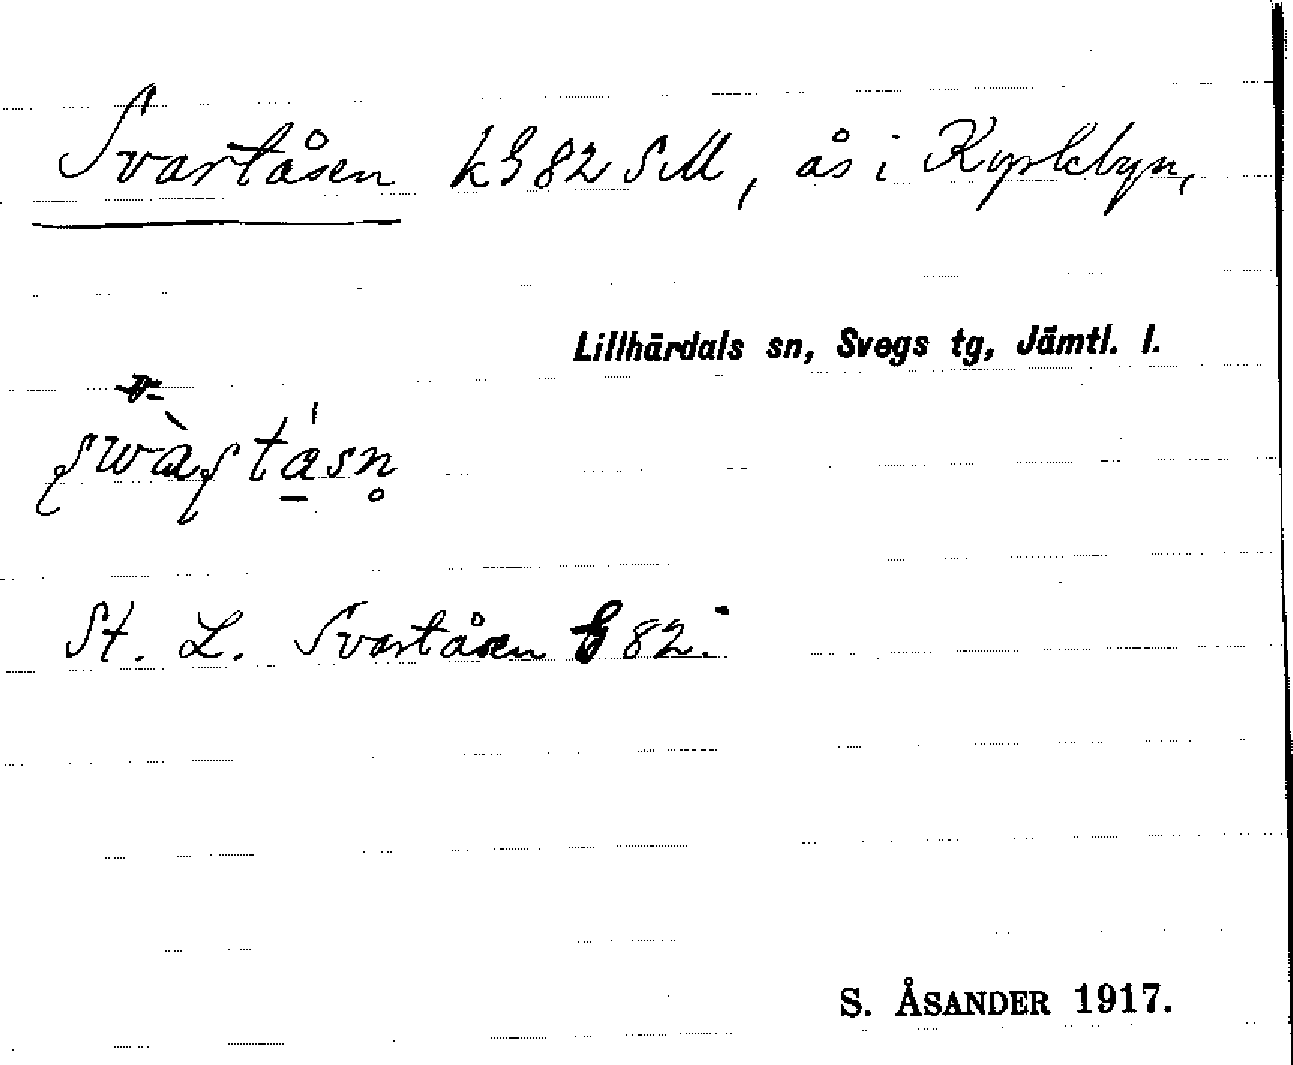 Svartåsen k G 82 SM, ås i Kyrkbyn,
Lillhärdals sn, Svegs tg, Jämtl. l.
St. L. Svartåsen G 82.
S. ÅSANDER 1917.